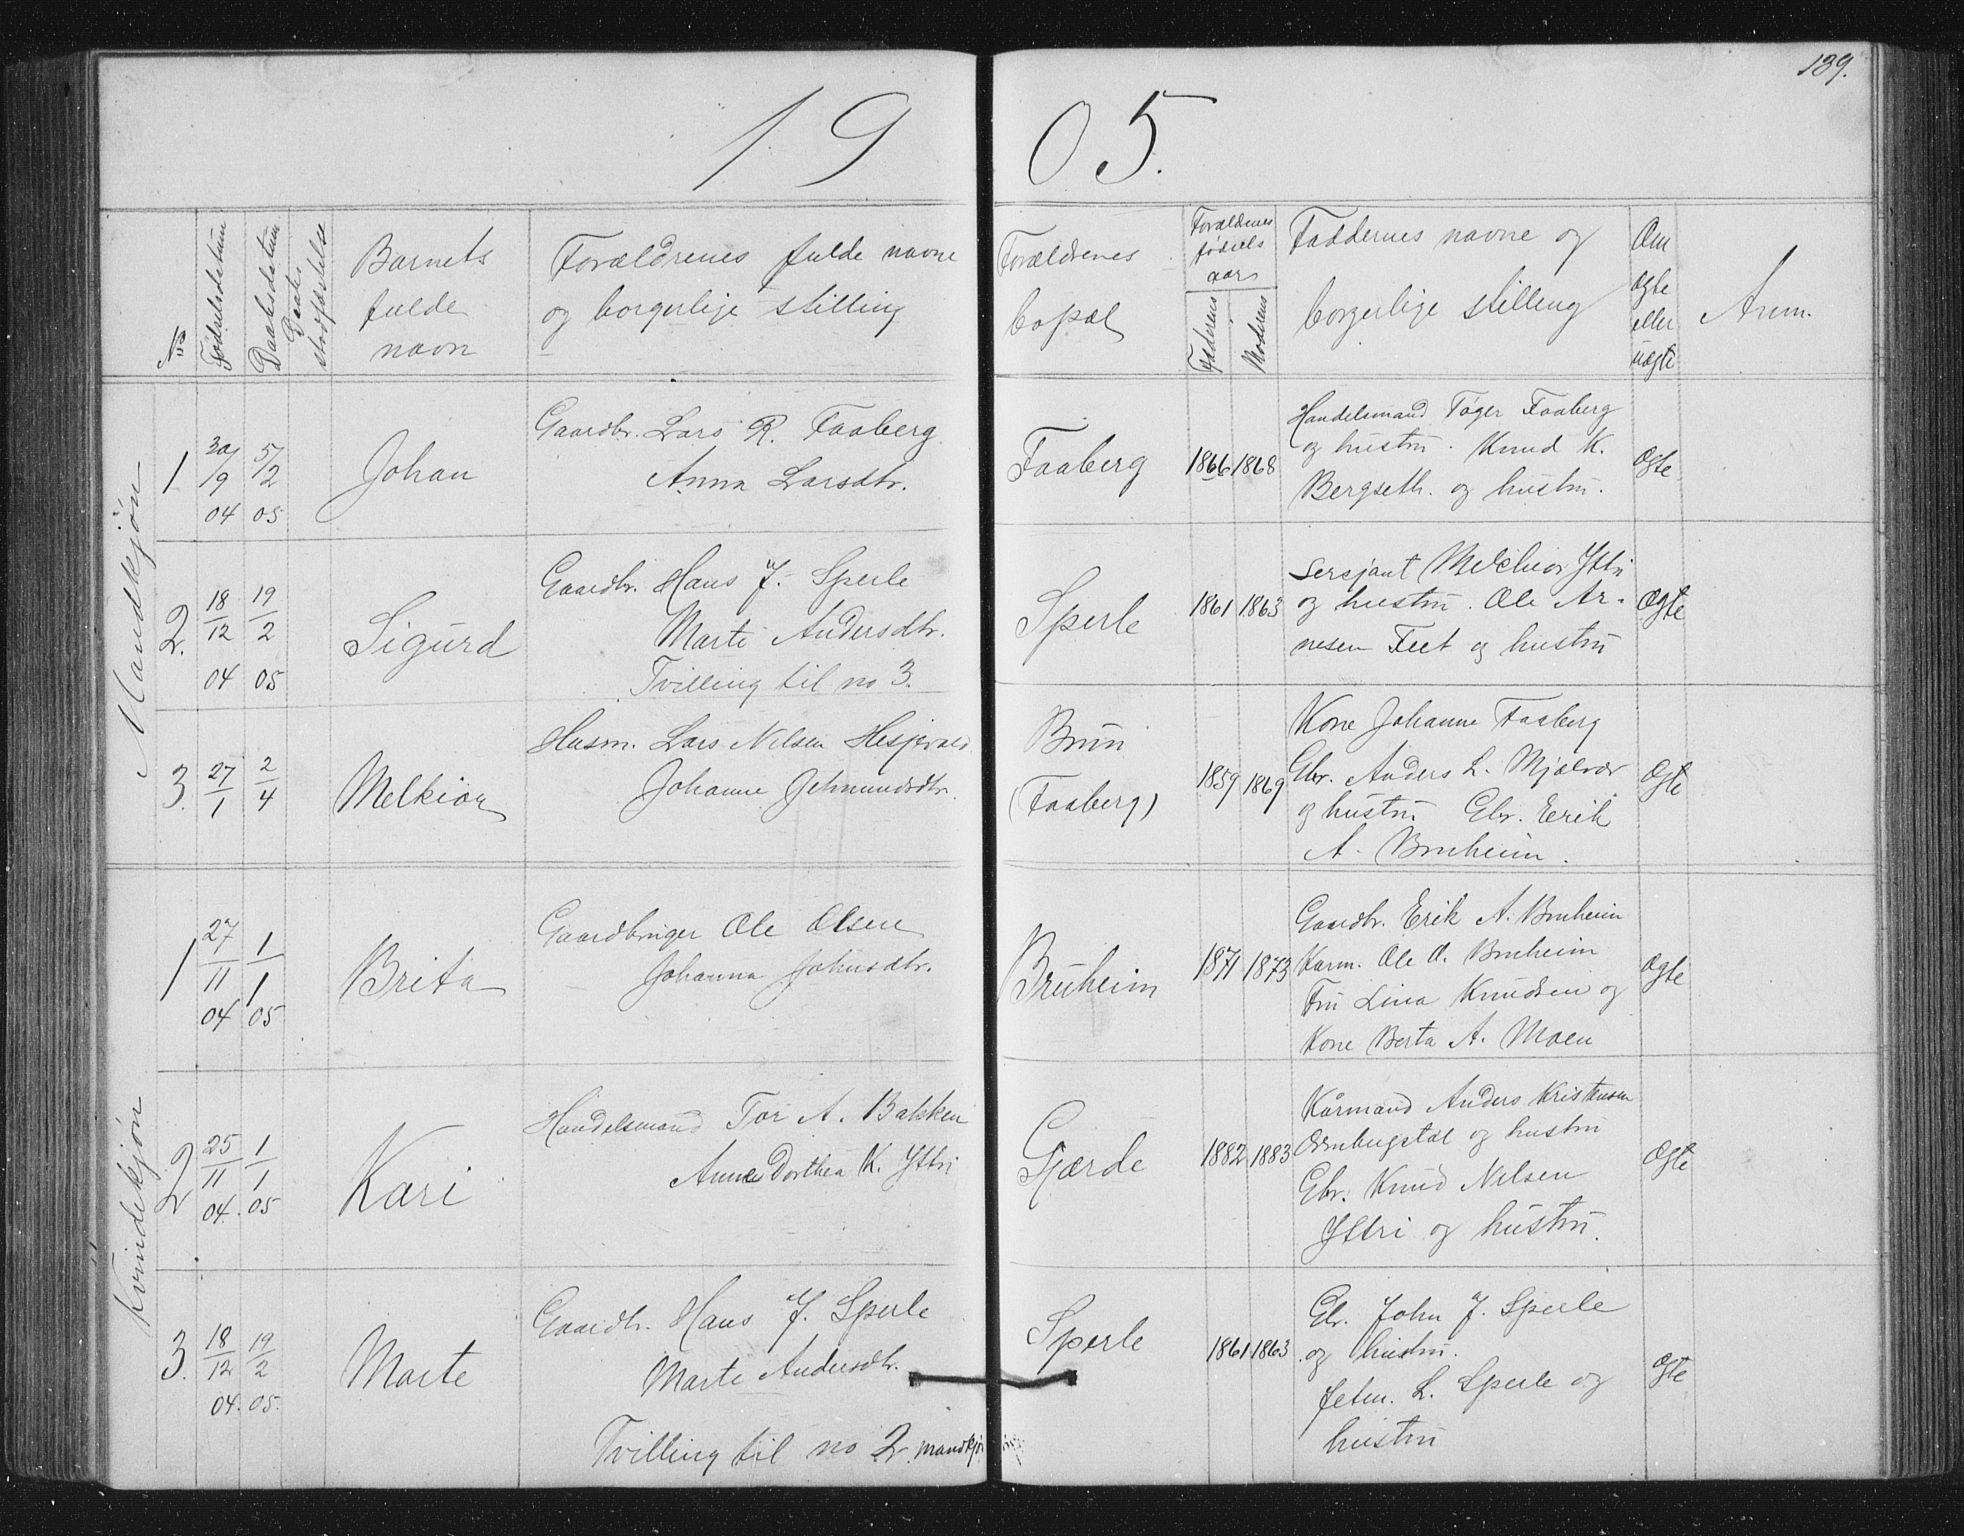 139.
19 05.
No
Fødselsdatum
Daabsdatum
Daabs stadfæstelse
Barnets
fulde
navn
Forældrenes fulde navne
og borgerlige stilling
Forældrenes
bopæl
Forældrenes
fødsels
aar
Faderens
Moderens
Faddernes navne og
borgerlige stilling
Om
ægte
eller
uægte
Anm.
Mandkjøn
1
30/9 04
5/2 05
Johan
Gaardbr. Lars R. Faaberg
Anna Larsdtr.
Faaberg
1866
1868
Handelsmand Tøger Faaberg
og hustru. Knud K.
Bergseth. og hustru.
Ægte
2.
18/12 04
19/2 05
Sigurd
Gaardbr. Hans J. Sperle
Marte Andersdtr.
Tvilling til no 3.
Sperle
1861
1863
Sersjant Melchior Yttri
og hustru. Ole Ar-
nesen Feet og hustru
Ægte
3.
27/1
2/4
Melkior
Husm. Lars Nilsen
Johanne
Brun
(Faaberg)
1859
1869
Kone Johanne Faaberg
Gbr. Anders L. Mjølvær
og hustru Gbr. Erik
A. Bruheim.
Ægte
Kvindekjøn
1
27/11 04
1/1 05
Brita
Gaardbruger Ole Olsen
Johanna Johnsdtr.
Bruheim
1871
1873
Gaardbr. Erik A. Bruheim
Karm. Ole O. Bruheim
Fru Lina Knudsen og
Kone Berta A. Moen
Ægte
2
25/11 04.
1/1 05
Kari
Handelsmand Tor A. Bakken
Anne Dorthea K. Yttri
Gjærde
1882
1883
Kårmand Anders Kristensen
og hustru
Gbr. Knud Nilsen
Yttri og hustru.
Ægte
3.
18/12 04.
19/2 05.
Marte
Gaardbr. Hans J. Sperle
Marte Andersdtr.
Tvilling til no 2. mandkjøn
Sperle
1861
1863
Gbr. John J. Sperle
og hustru.
L. Sperle og
hustru
Ægte